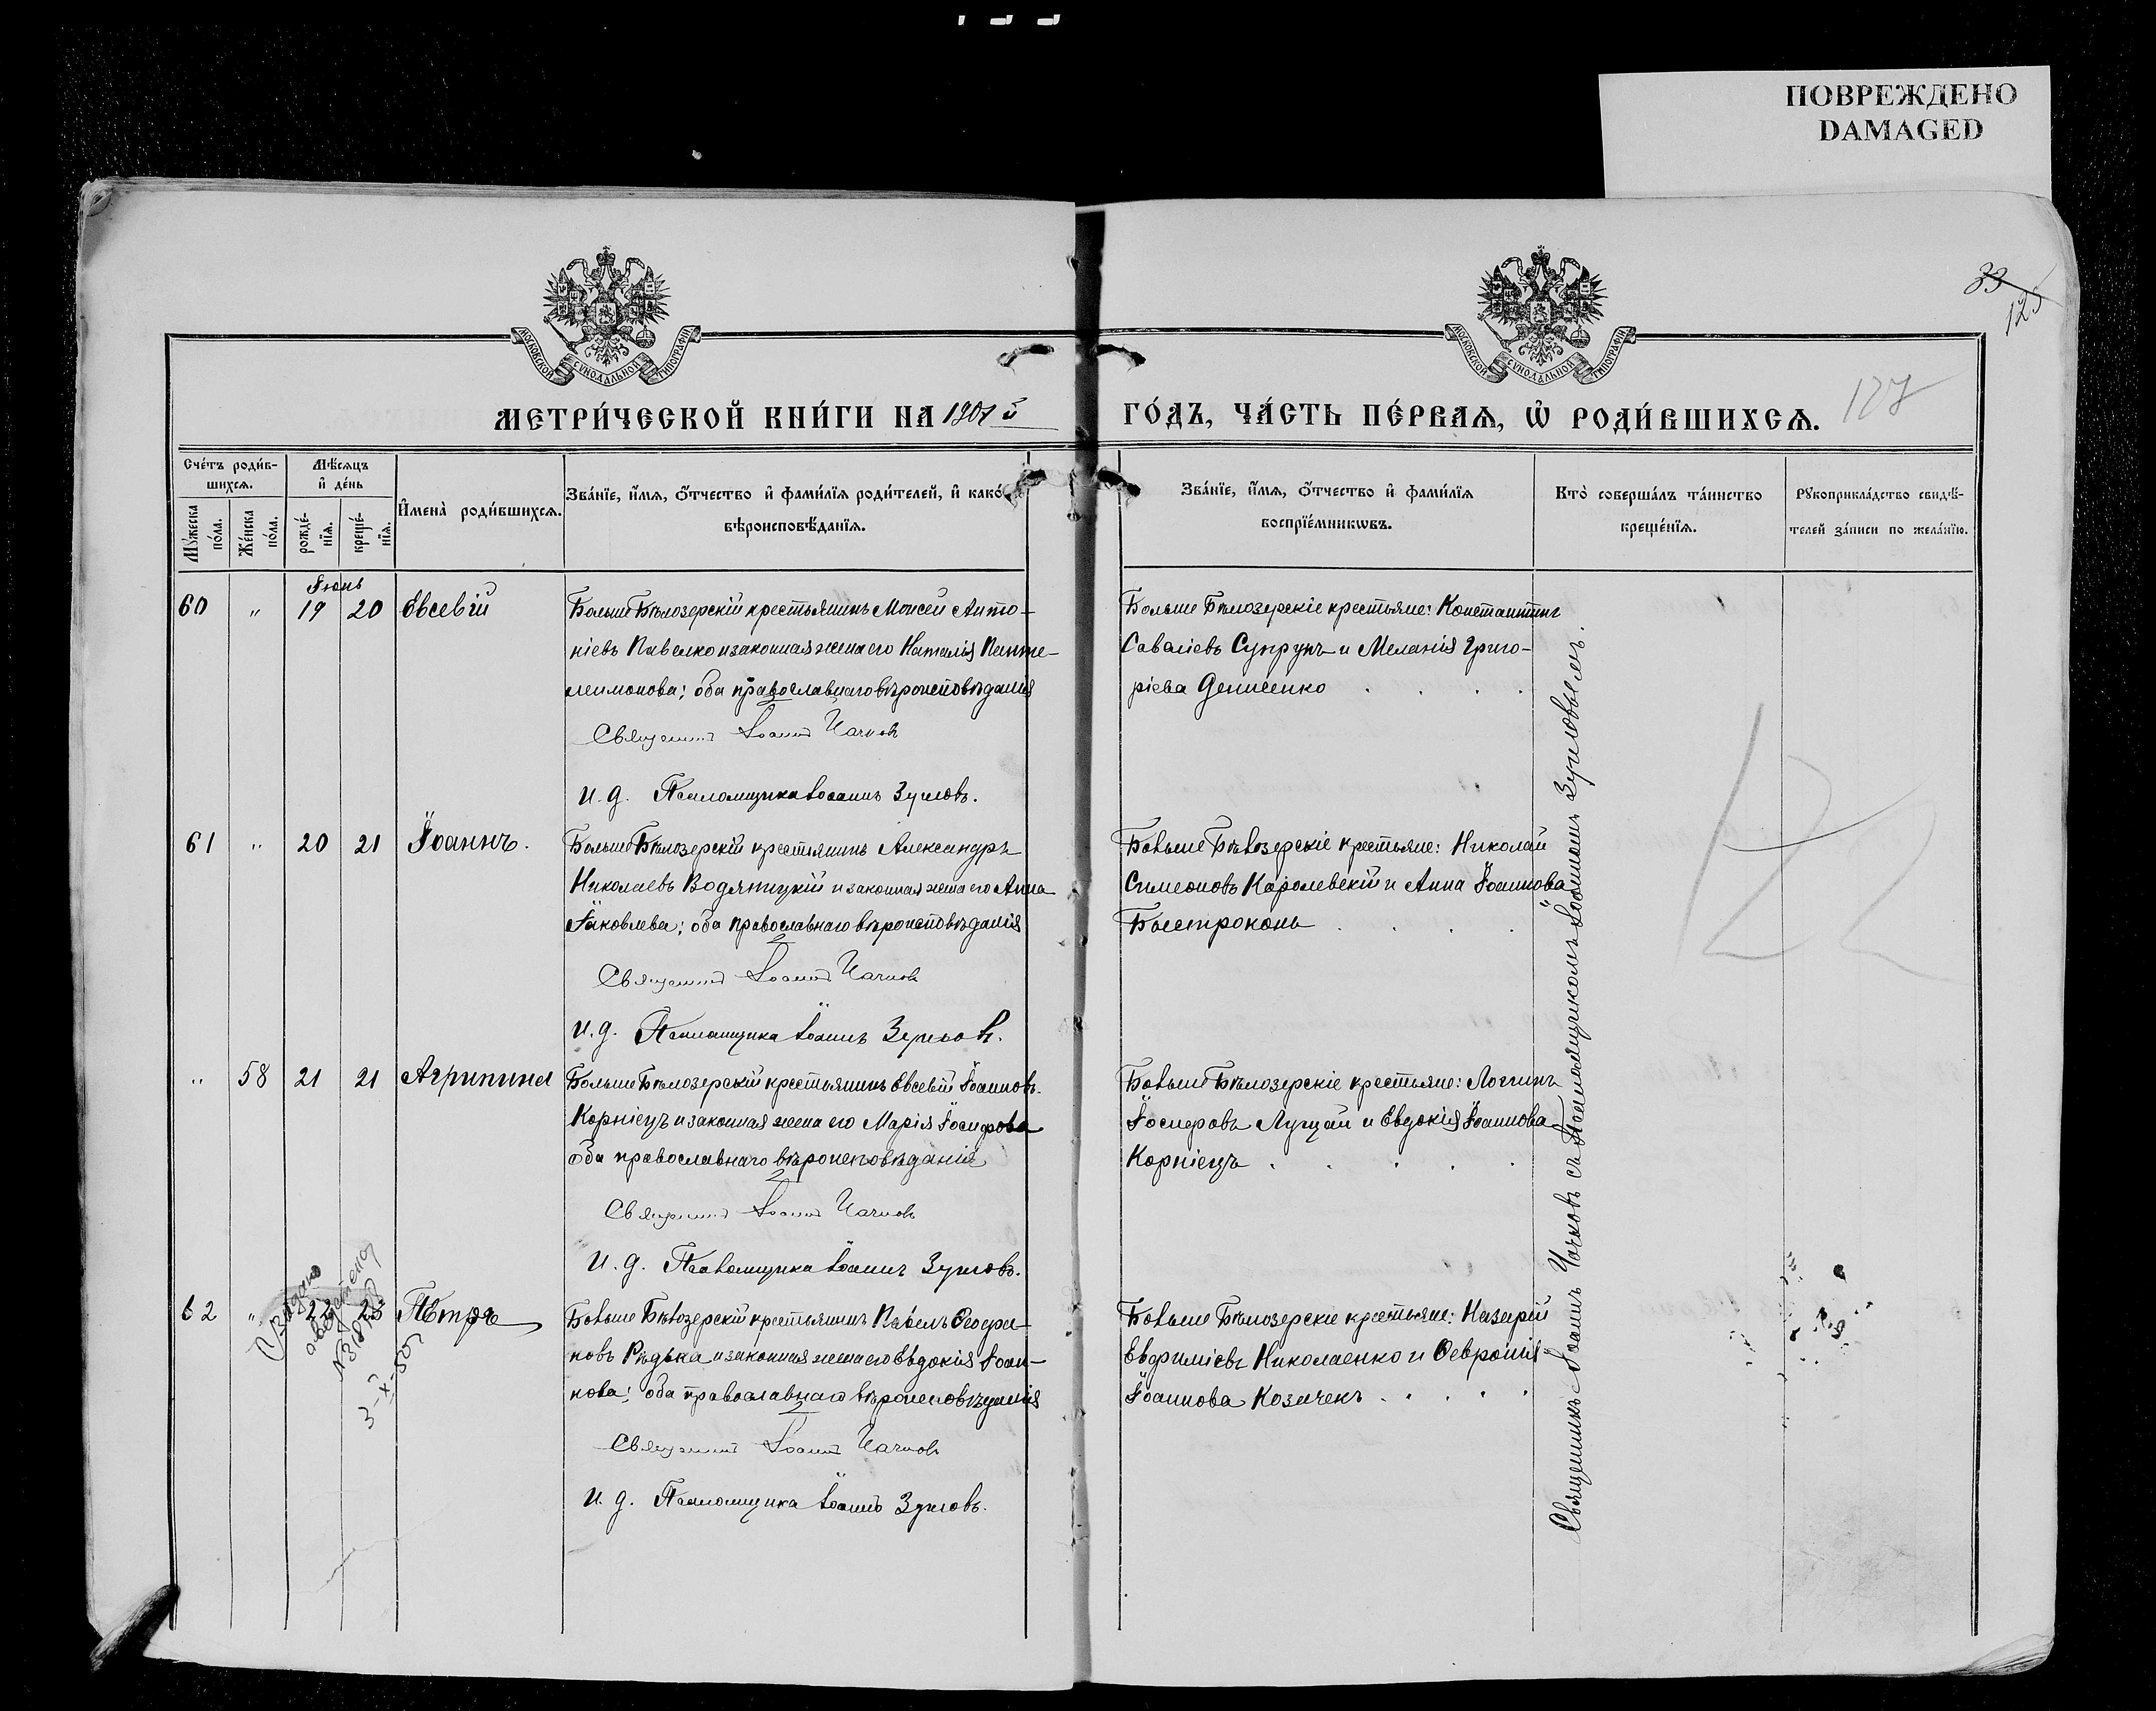 ПОВРЕЖДЕНО
DAMAGED
33
125
МОСКОВСКОЙ СУНОДАЛЬНОЙ ТИПОГРАФІИ
МОСКОВСКОЙ СУНОДАЛЬНОЙ ТИПОГРАФІИ
МЕТРИ́ЧЕСКОЙ КНИ́ГИ НА 1901 й
ГО́ДЪ, ЧА́СТЬ ПЕ́РВАЯ, Ѡ РОДИ́ВШИХСЯ.
127
Сче́тъ роди́в-
шихся.
Мѣ́сяцъ
и де́нь
Му́жеска по́ла.
Же́нска по́ла.
рожде́-нїя.
креще́-нїя.
Имена̀ роди́вшихся.
Зва́нїе, и́мя, о́тчество и фами́лїя роди́телей, и како́-
вѣроисповѣ́данїя.
Зва́нїе, и́мя, о́тчество и фами́лїя
воспрїе́мникѡвъ.
Кто̀ соверша́лъ та́инство
креще́нїя.
Рукоприкла́дство свидѣ́-
телей за́писи по жела́нїю.
Іюнь
60 " 19 20 Евсевій
Больше Бѣлозерскій крестьянинъ Моисей Анто-
ніевъ Павелко и законная жена его Наталія Панте-
леимонова; оба православнаго вѣроисповѣданія
Священникъ Іоаннъ Чачковъ
И. д. Псаломщика Іоаннъ Зумовъ.
Больше Бѣлозерскіе крестьяне: Константинъ
Саваліевъ Супрунъ и Меланія Григо-
ріева Денисенко
61 " 20 21 Іоаннъ.
Больше Бѣлозерскій крестьянинъ Александръ
Николаевъ Водяницкій и законная жена его Анна
Іаковлева; оба православнаго вѣроисповѣданія
Священникъ Іоаннъ Чачковъ
И. д. Псаломщика Іоаннъ Зумовъ.
Больше Бѣлозерскіе крестьяне: Николай
Симеоновъ Каролевскій и Анна Іоаннова
Быстроконь
" 58 21 21 Агрипина
Больше Бѣлозерскій крестьянинъ Евсевій Іоанновъ
Корніецъ и законная жена его Марія Іосифова
оба православнаго вѣроисповѣданія
Священникъ Іоаннъ Чачковъ
И. д. Псаломщика Іоаннъ Зумовъ.
Больше Бѣлозерскіе крестьяне: Логгинъ
Іосифовъ Лущай и Евдокія Іоаннова
Корніецъ
62 " 22 23 Петръ
Больше Бѣлозерскій крестьянинъ Павелъ Ѳеофа-
новъ Рѣдька и законная жена его Евдокія Іоан-
нова; оба православнаго вѣроисповѣданія
Священникъ Іоаннъ Чачковъ
И. д. Псаломщика Іоаннъ Зумовъ.
Больше Бѣлозерскіе крестьяне: Назарій
Евфиміевъ Николаенко и Ѳевронія
Іоаннова Козачекъ
Священникъ Іоаннъ Чачковъ съ Псаломщикомъ Іоанномъ Зумовымъ.